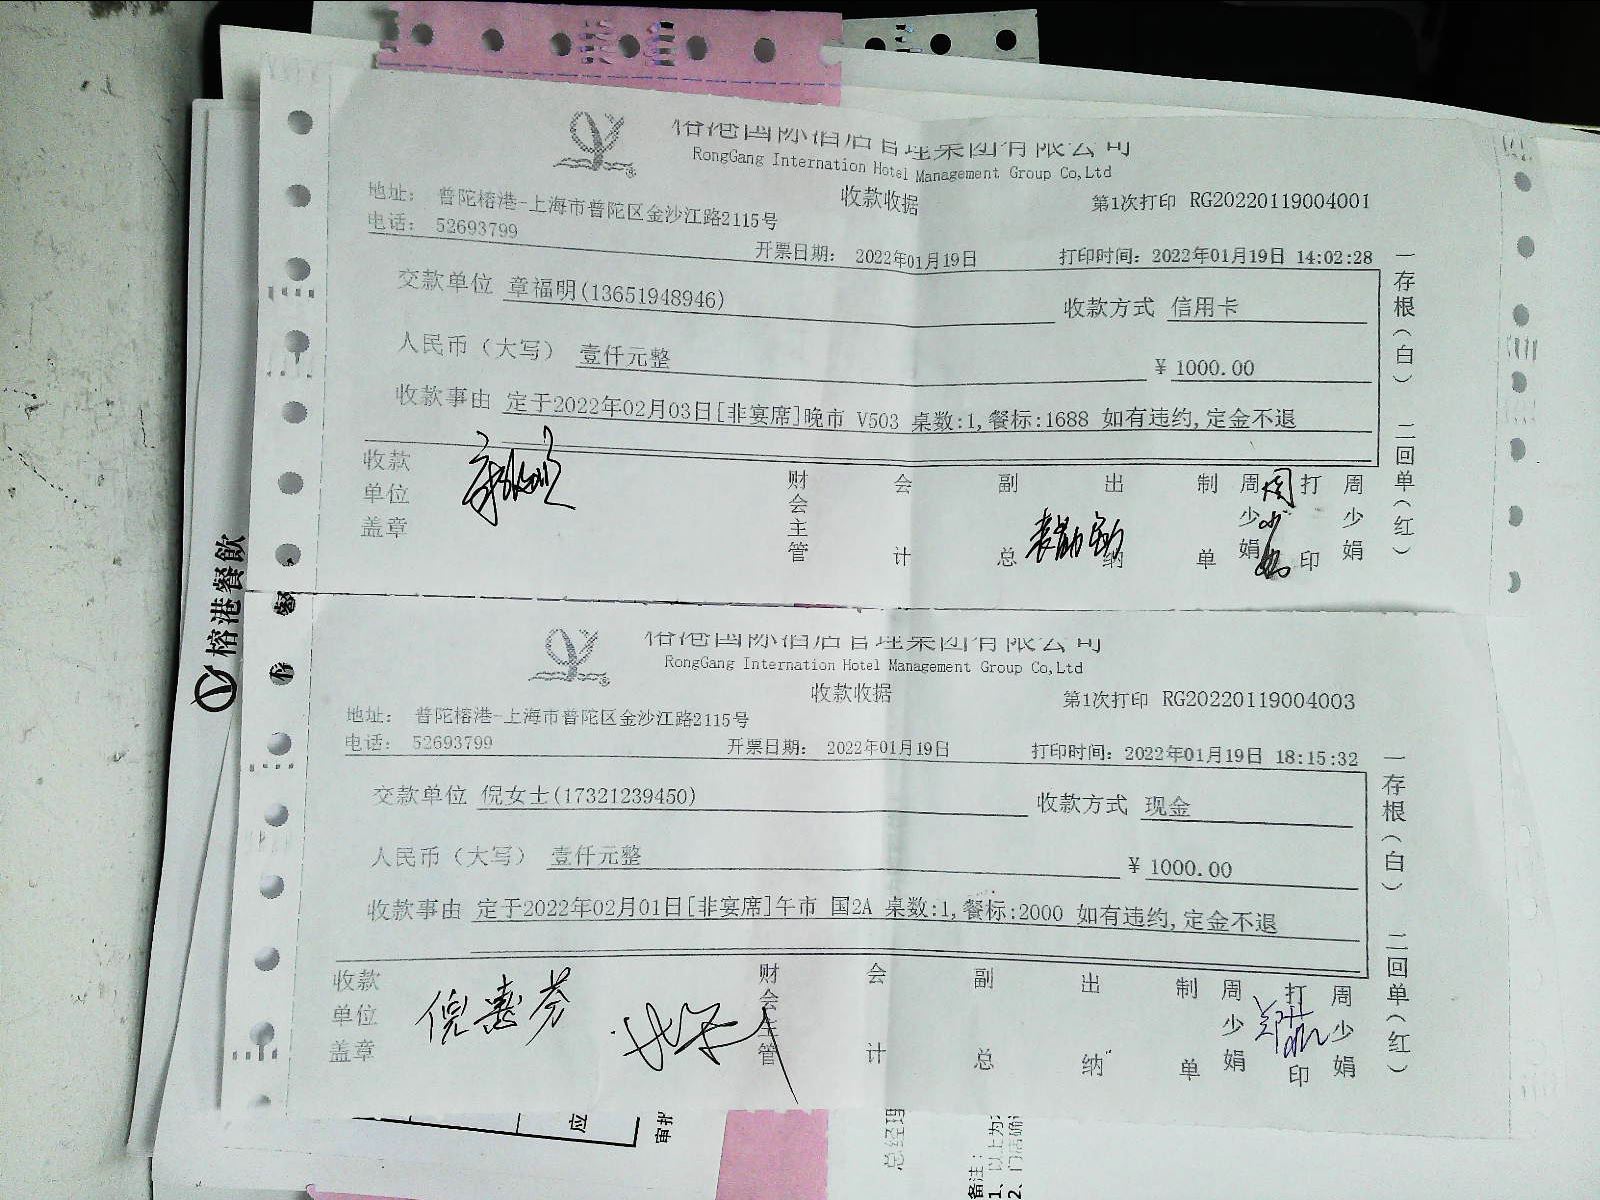 榕港国际酒店管理集团有限公司
RongGang Internation Hotel Management Group Co,Ltd
收款收据
第1次打印 RG20220119004001
地址： 普陀榕港-上海市普陀区金沙江路2115号
电话： 52693799
开票日期： 2022年01月19日
打印时间：2022年01月19日 14:02:28
交款单位 章福明(13651948946)
收款方式 信用卡
人民币（大写） 壹仟元整
￥ 1000.00
收款事由 定于2022年02月03日[非宴席]晚市 V503 桌数:1,餐标:1688 如有违约,定金不退
收款单位盖章
财会主管
会计
副总
出纳
制单
周少娟
周少娟
打印
周少娟
一存根（白） 二回单（红）
榕港国际酒店管理集团有限公司
RongGang Internation Hotel Management Group Co,Ltd
收款收据
第1次打印 RG20220119004003
地址： 普陀榕港-上海市普陀区金沙江路2115号
电话： 52693799
开票日期： 2022年01月19日
打印时间：2022年01月19日 18:15:32
交款单位 倪女士(17321239450)
收款方式 现金
人民币（大写） 壹仟元整
￥ 1000.00
收款事由 定于2022年02月01日[非宴席]午市 国2A 桌数:1,餐标:2000 如有违约,定金不退
收款单位盖章
倪惠芬
财会主管
会计
副总
出纳
制单
周少娟
打印
周少娟
一存根（白） 二回单（红）
榕港餐飲
应
审批
总经理
备注：
1、以上为
2、门店确